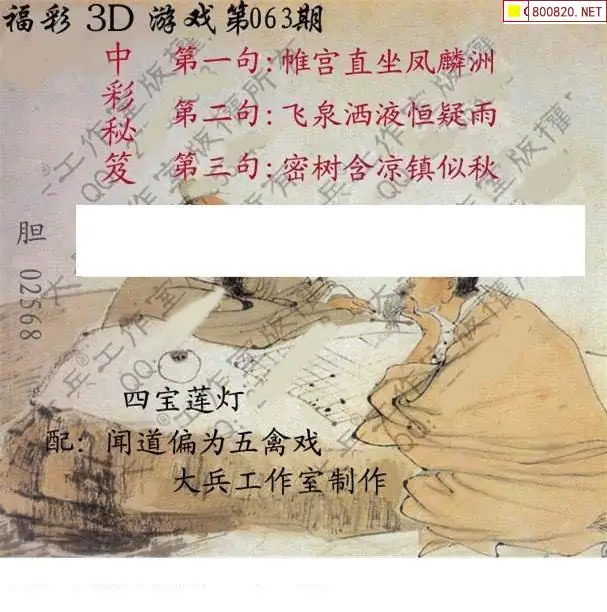 福彩 3D 游戏第063期
800820.NET
中彩秘笈
第一句:帷宫直坐凤麟洲
第二句:飞泉洒液恒疑雨
第三句:密树含凉镇似秋
胆 02568
四宝莲灯
配：闻道偏为五禽戏
大兵工作室制作
大兵®工作室版權所有